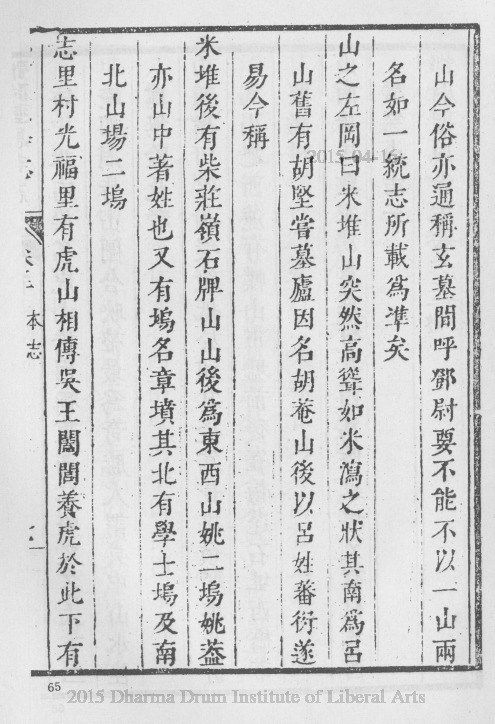 山今俗亦通稱玄墓間呼鄧尉要不能不以一山兩
名如一統志所載爲準矣
山之左岡曰米堆山突然高聳如米瀉之狀其南爲呂
山舊有胡堅嘗墓廬因名胡菴山後以呂姓蕃衍遂
易今稱
米堆後有柴莊嶺石牌山山後爲東西山姚二塢姚葢
亦山中著姓也又有塢名章墳其北有學士塢及南
北山塲二塢
志里村光福里有虎山相傳吳王闔閭養虎於此下有
本志
65
2015-04-16
2015 Dharma Drum Institute of Liberal Arts